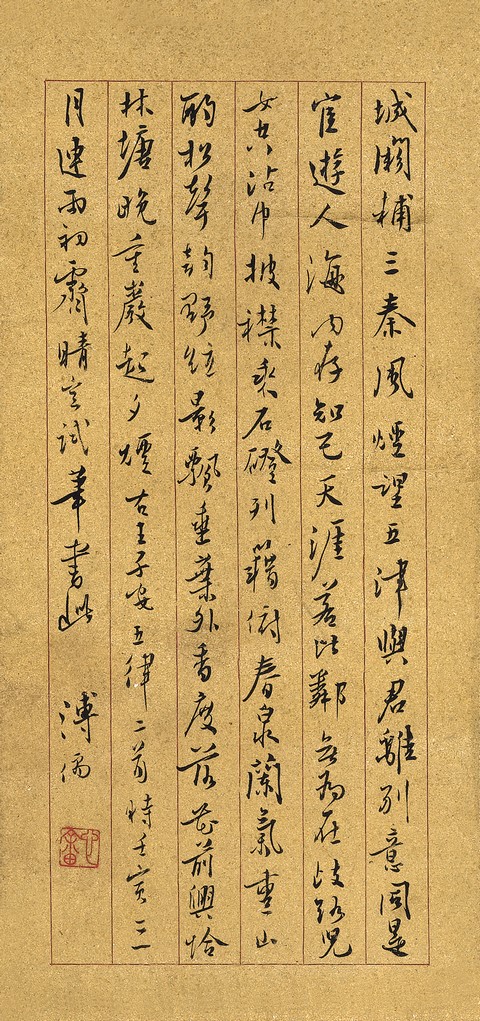 城闕輔三秦風煙望五津與君離別意同是
宦遊人海內存知己天涯若比鄰無為在歧路兒
女共沾巾披襟乘石磴列籍俯春泉蘭氣熏山
酌松聲韵野絃影飄垂葉外香度落花前興洽
林塘晚重巖起夕煙右王子安五律二首時壬寅三
月連雨初霽晴窗試筆書此 溥儒
心畬